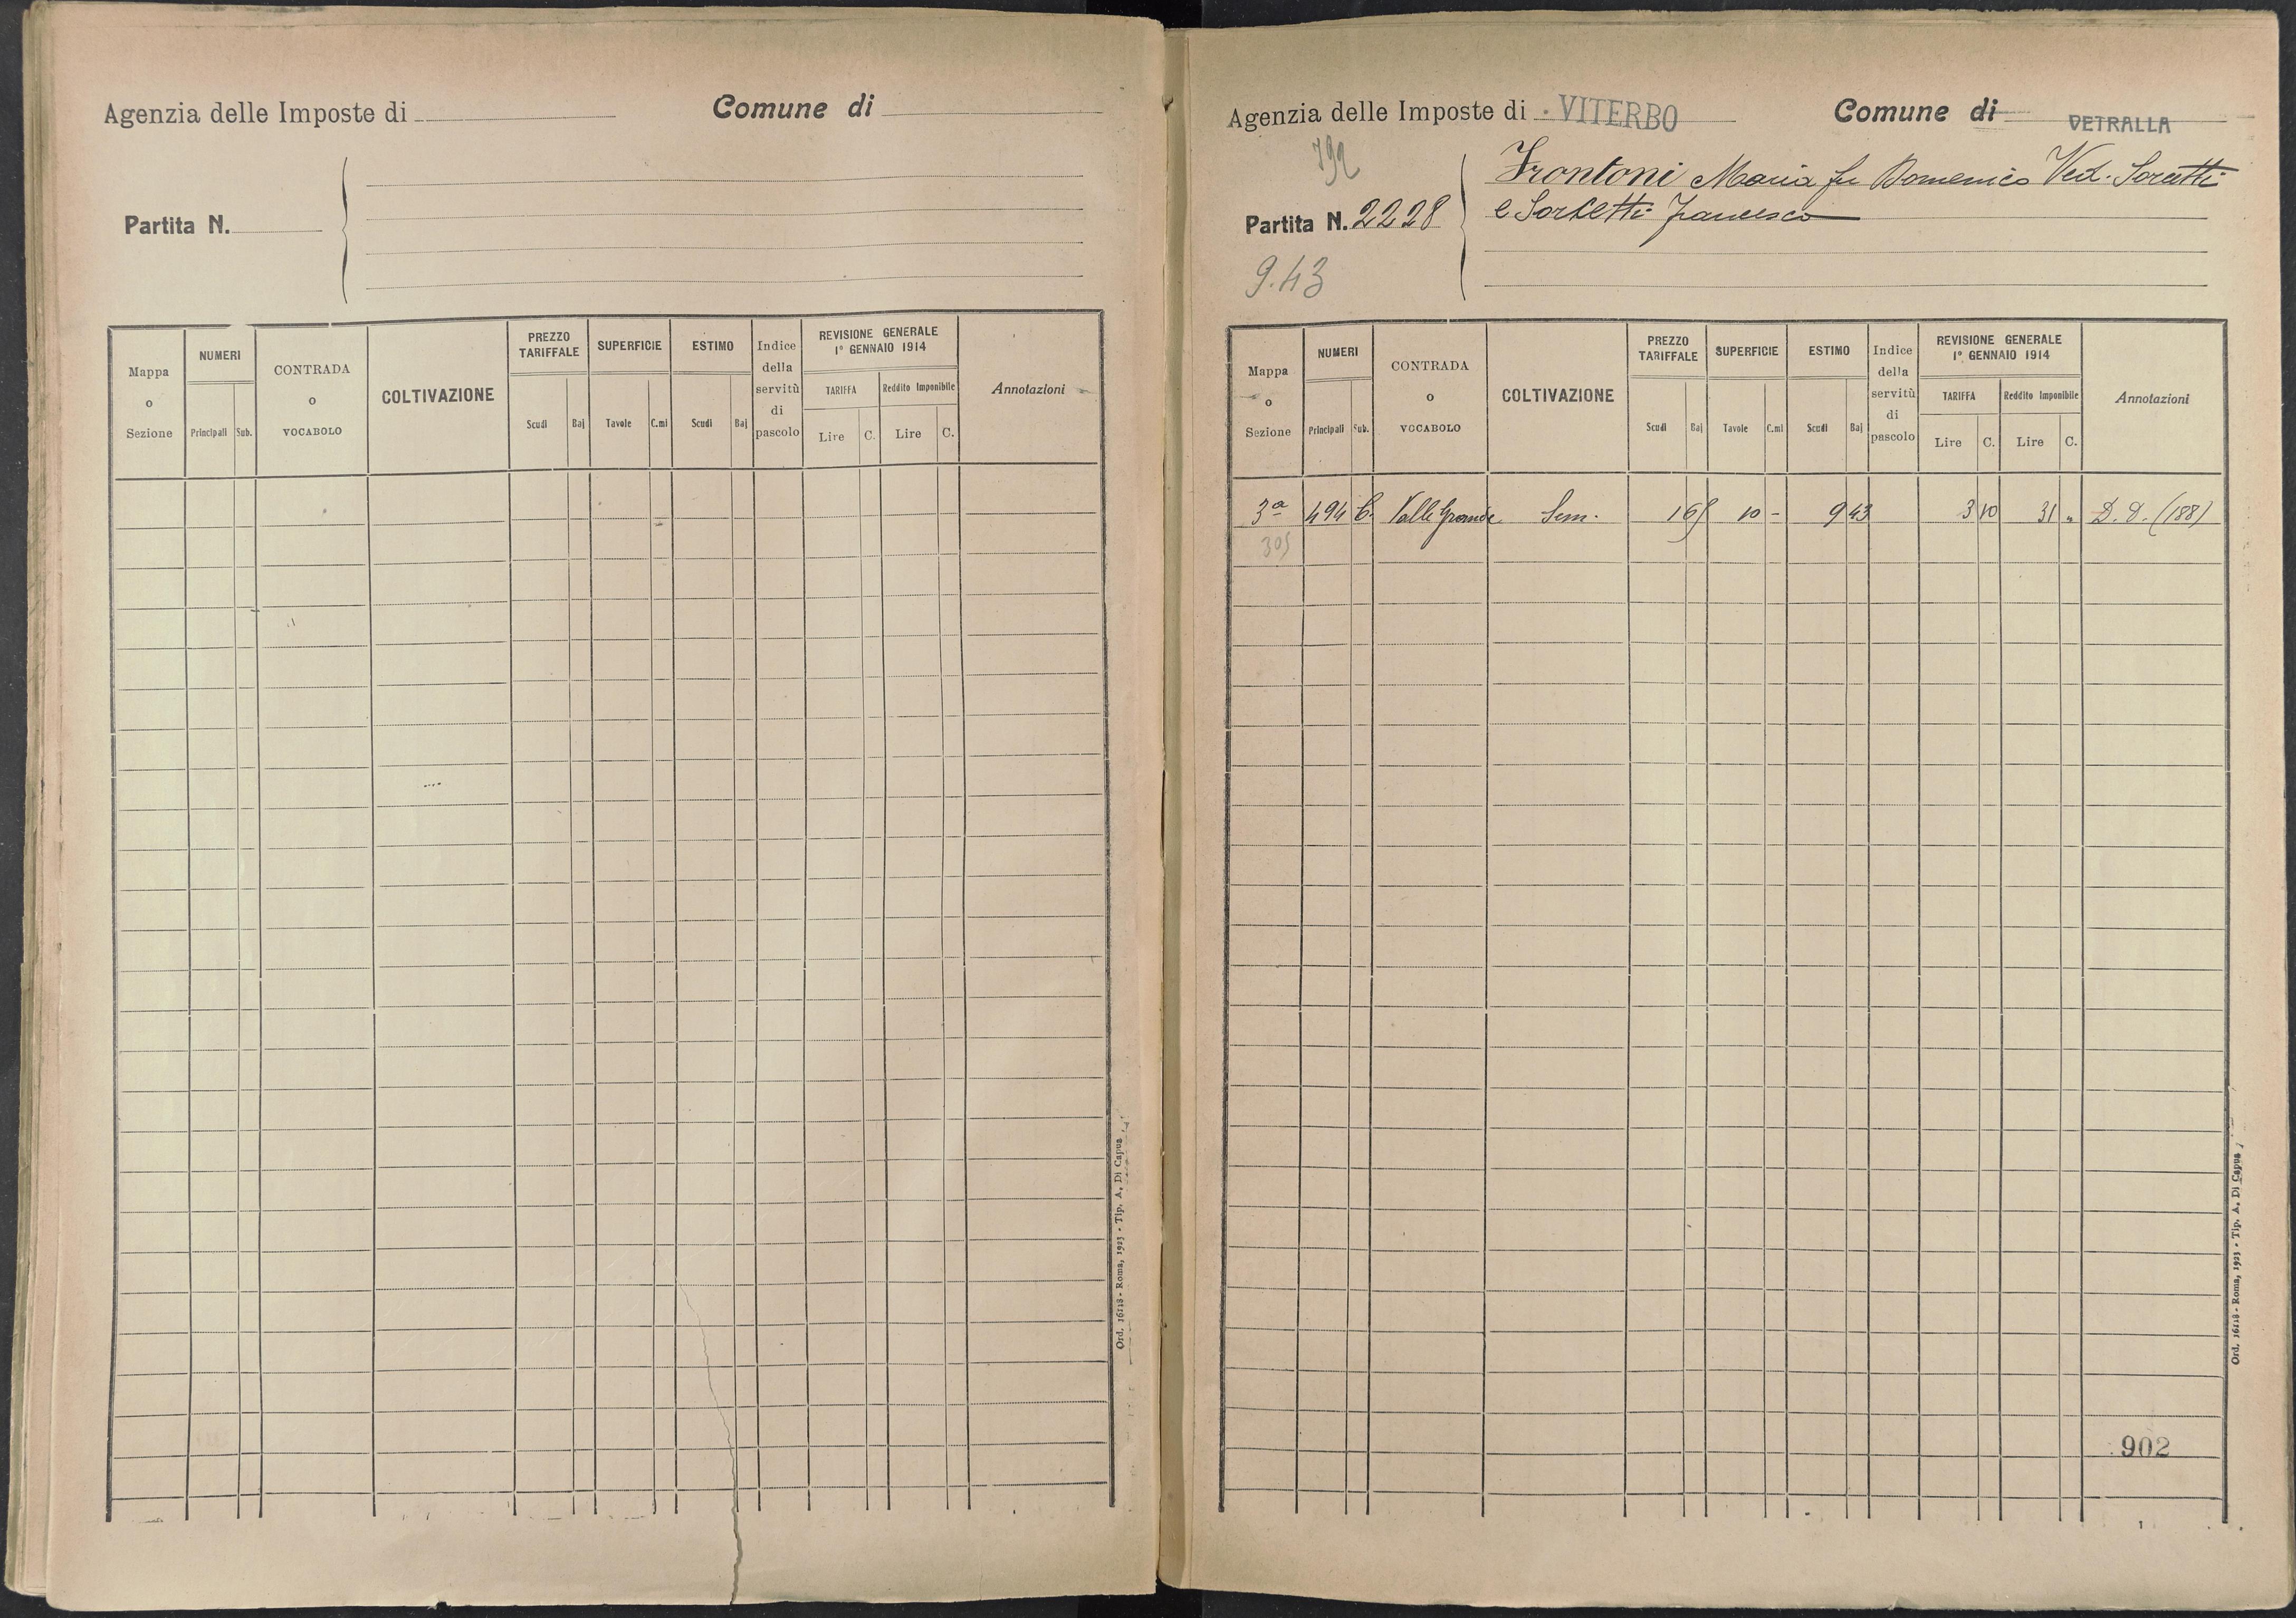 Agenzia delle Imposte di
Comune di
Partita N.
Mappa o Sezione
NUMERI
Principali Sub.
CONTRADA o VOCABOLO
COLTIVAZIONE
PREZZO TARIFFALE
Scudi Baj
SUPERFICIE
Tavole C.mi
ESTIMO
Scudi Baj
Indice della servitù di pascolo
REVISIONE GENERALE
1° GENNAIO 1914
TARIFFA
Lire C.
Reddito Imponibile
Lire C.
Annotazioni
Ord. 16118 - Roma, 1923 - Tip. A. Di Capua
Agenzia delle Imposte di VITERBO
Comune di VETRALLA
792
Partita N. 2228
Frontoni Maria fu Domenico Ved. Soretti
e Francesco
9.43
Mappa o Sezione
NUMERI
Principali Sub.
CONTRADA o VOCABOLO
COLTIVAZIONE
PREZZO TARIFFALE
Scudi Baj
SUPERFICIE
Tavole C.mi
ESTIMO
Scudi Baj
Indice della servitù di pascolo
REVISIONE GENERALE
1° GENNAIO 1914
TARIFFA
Lire C.
Reddito Imponibile
Lire C.
Annotazioni
3a 494 Valle Grande Sem. 10 - 9 43 3 10 31 " D. D. (188)
305
902
Ord. 16118 - Roma, 1923 - Tip. A. Di Capua